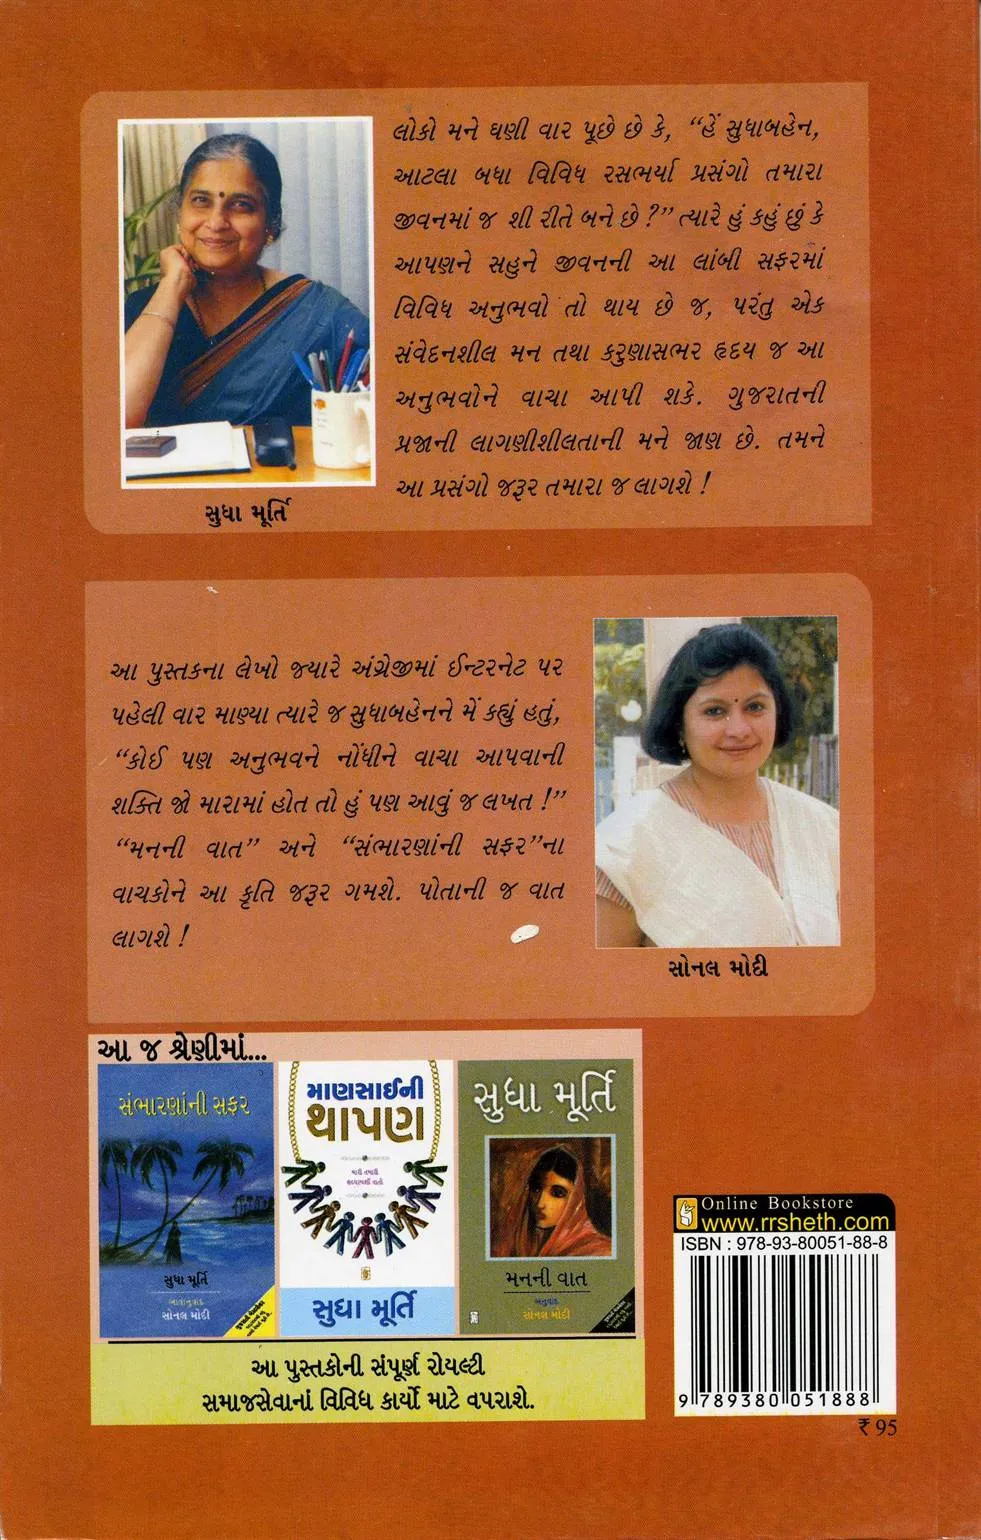 લોકો મને ઘણી વાર પૂછે છે કે, “હેં સુધાબહેન,
આટલા બધા વિવિધ રસભર્યા પ્રસંગો તમારા
જીવનમાં જ શી રીતે બને છે ?” ત્યારે હું કહું છું કે
આપણને સહુને જીવનની આ લાંબી સફરમાં
વિવિધ અનુભવો તો થાય છે જ, પરંતુ એક
સંવેદનશીલ મન તથા કરુણાસભર હૃદય જ આ
અનુભવોને વાચા આપી શકે. ગુજરાતની
પ્રજાની લાગણીશીલતાની મને જાણ છે. તમને
આ પ્રસંગો જરૂર તમારા જ લાગશે !
સુધા મૂર્તિ
આ પુસ્તકના લેખો જ્યારે અંગ્રેજીમાં ઈન્ટરનેટ પર
પહેલી વાર માણ્યા ત્યારે જ સુધાબહેનને મેં કહ્યું હતું,
“કોઈ પણ અનુભવને નોંધીને વાચા આપવાની
શક્તિ જો મારામાં હોત તો હું પણ આવું જ લખત !”
“મનની વાત” અને “સંભારણાંની સફર”ના
વાચકોને આ કૃતિ જરૂર ગમશે. પોતાની જ વાત
લાગશે !
સોનલ મોદી
આ જ શ્રેણીમાં...
સંભારણાંની સફર
સુધા મૂર્તિ
ભાવાનુવાદ
સોનલ મોદી
માણસાઈની
થાપણ
મારી તમારી
સુધા મૂર્તિ
સુધા મૂર્તિ
મનની વાત
અનુવાદ
સોનલ મોદી
આ પુસ્તકોની સંપૂર્ણ રોયલ્ટી
સમાજસેવાનાં વિવિધ કાર્યો માટે વપરાશે.
Online Bookstore
www.rrsheth.com
ISBN : 978-93-80051-88-8
9 789380 051888
₹ 95